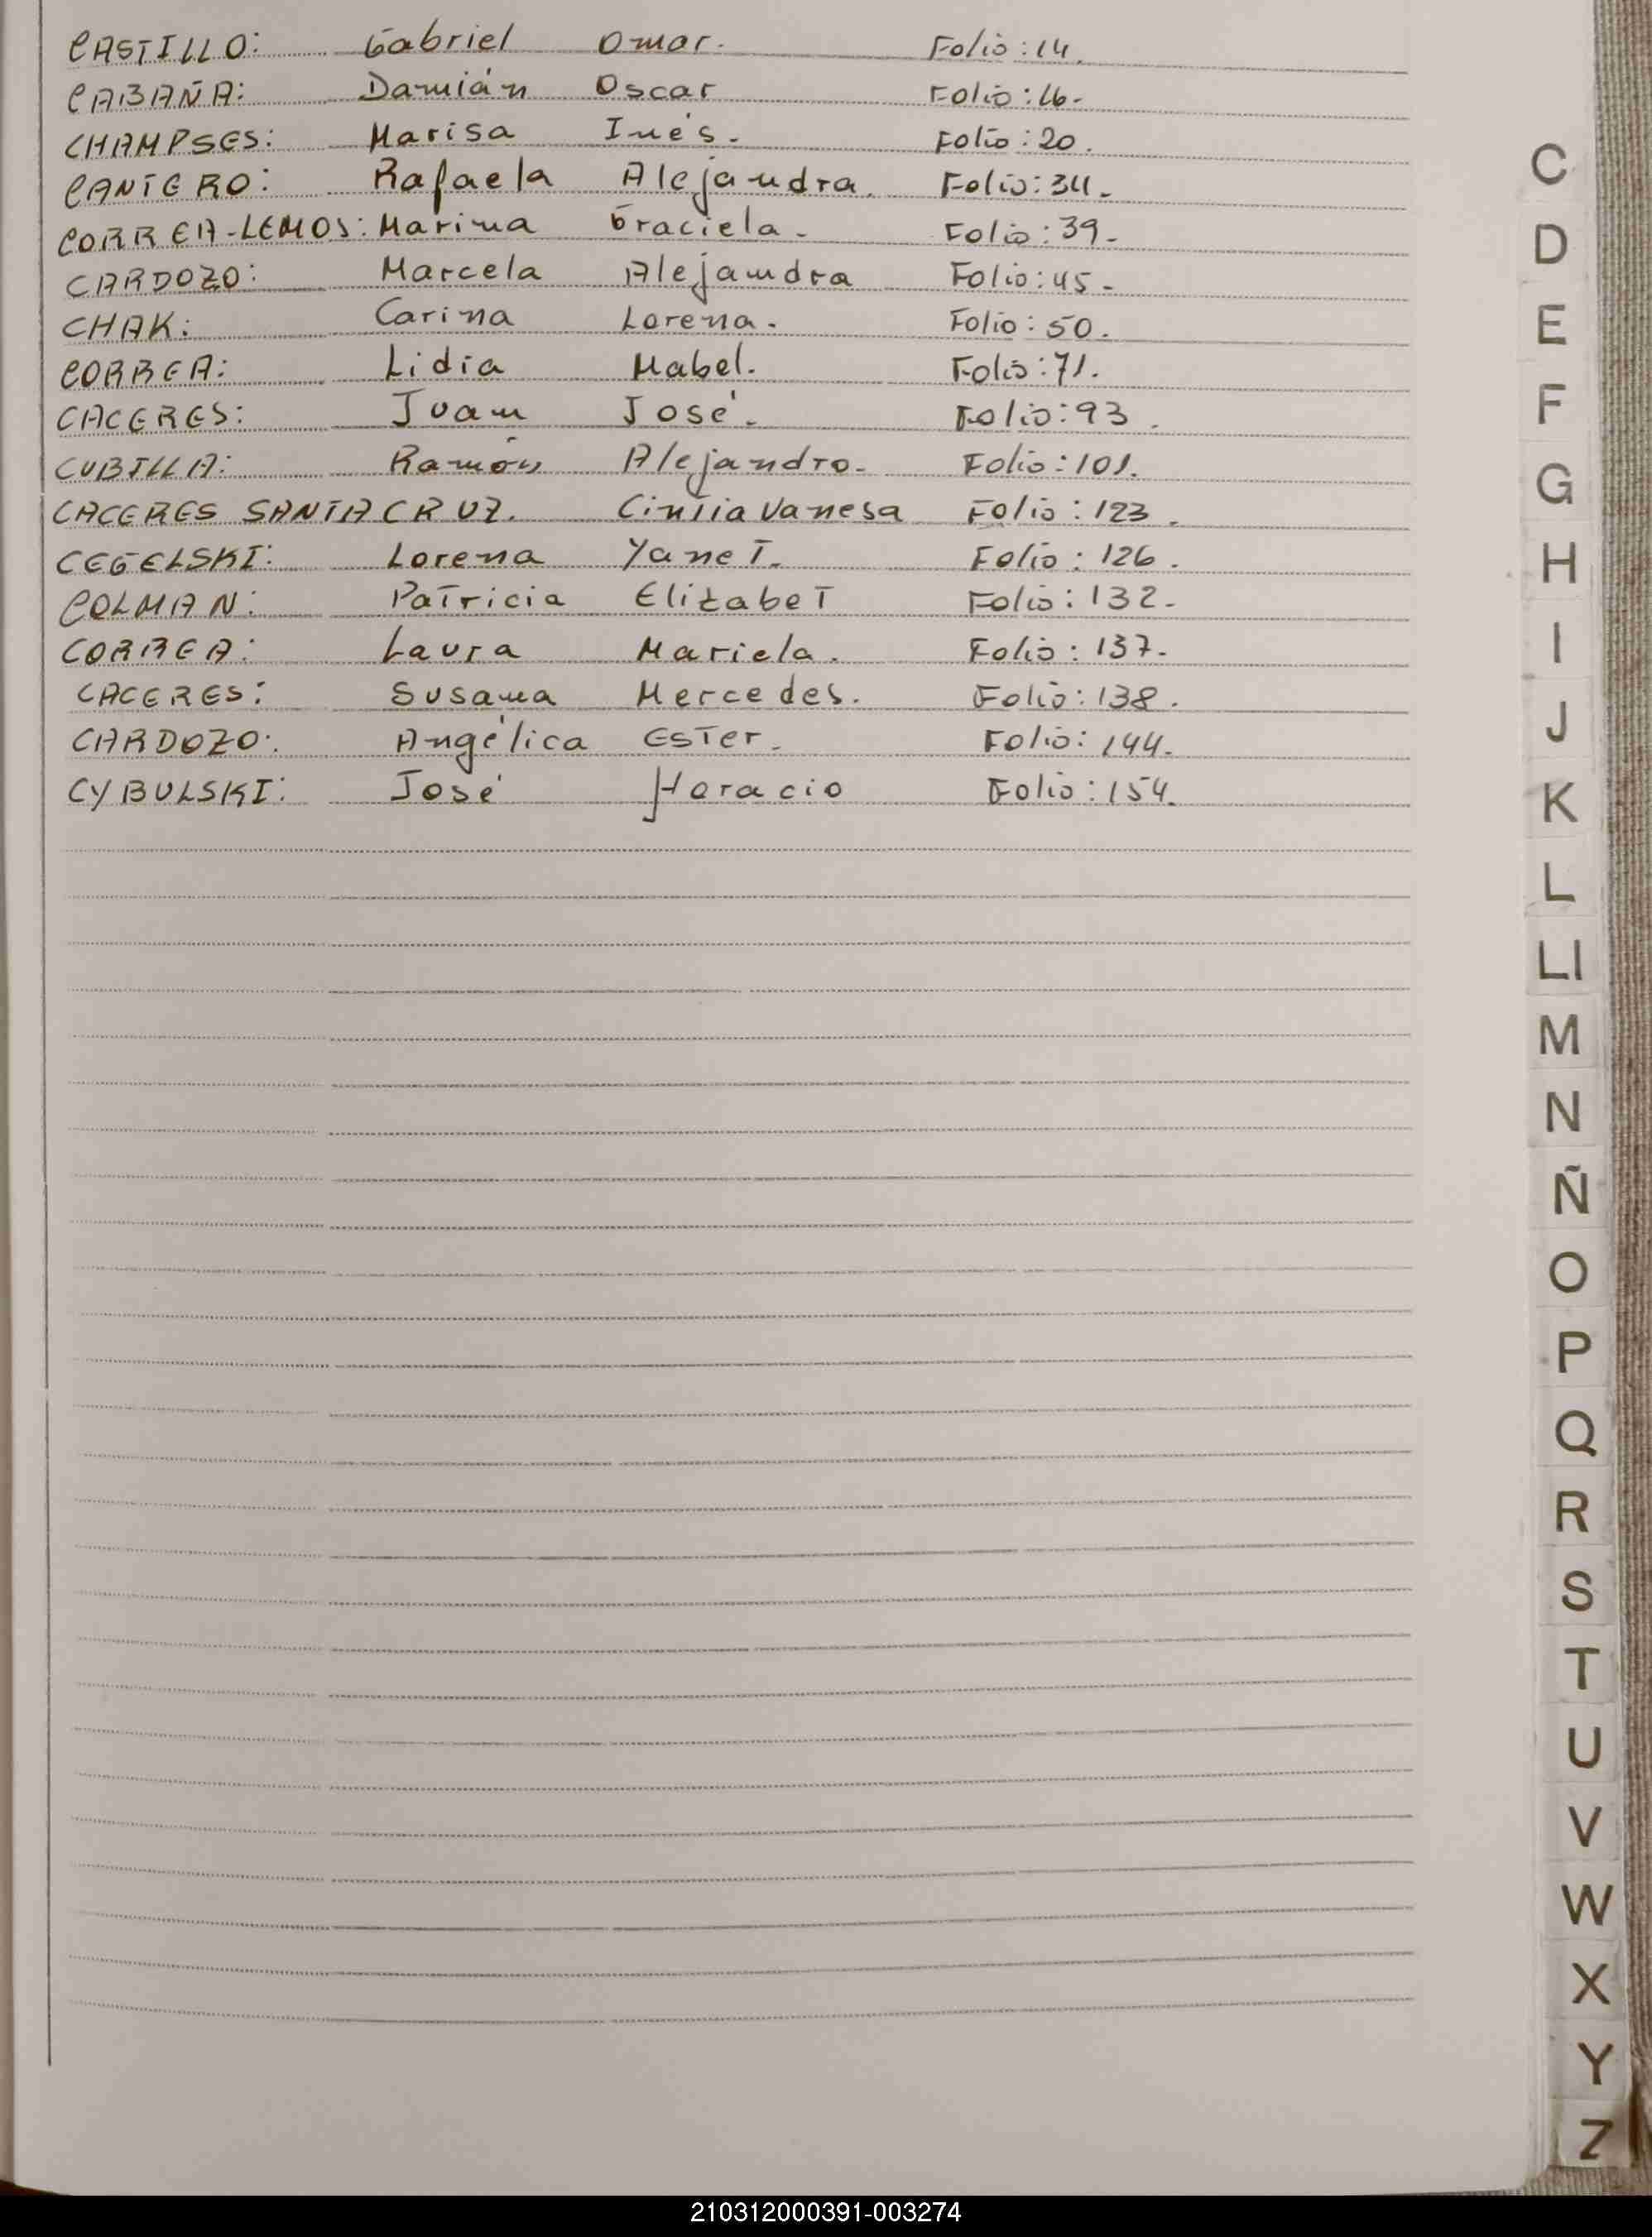 CASTILLO: Gabriel Omar. Folio: 14.
CABAÑA: Damián Oscar Folio: 16.
CHAMPSES: Marisa Inés. Folio: 20.
CANTERO: Rafaela Alejandra. Folio: 34.
CORREA-LEMOS: Marina Graciela. Folio: 39.
CARDOZO: Marcela Alejandra Folio: 45.
CHAK: Carina Lorena. Folio: 50.
CORREA: Lidia Mabel. Folio: 71.
CACERES: Juan José. Folio: 93.
CUBILLA: Ramón Alejandro. Folio: 101.
CACERES SANTA CRUZ. Cintia Vanesa Folio: 123.
CEGELSKI: Lorena Yanet. Folio: 126.
COLMAN: Patricia Elizabet Folio: 132.
CORREA: Laura Mariela. Folio: 137.
CACERES: Susana Mercedes. Folio: 138.
CARDOZO: Angélica Ester. Folio: 144.
CYBULSKI: José Horacio Folio: 154.
C
D
E
F
G
H
I
J
K
L
Ll
M
N
Ñ
O
P
Q
R
S
T
U
V
W
X
Y
Z
210312000391-003274